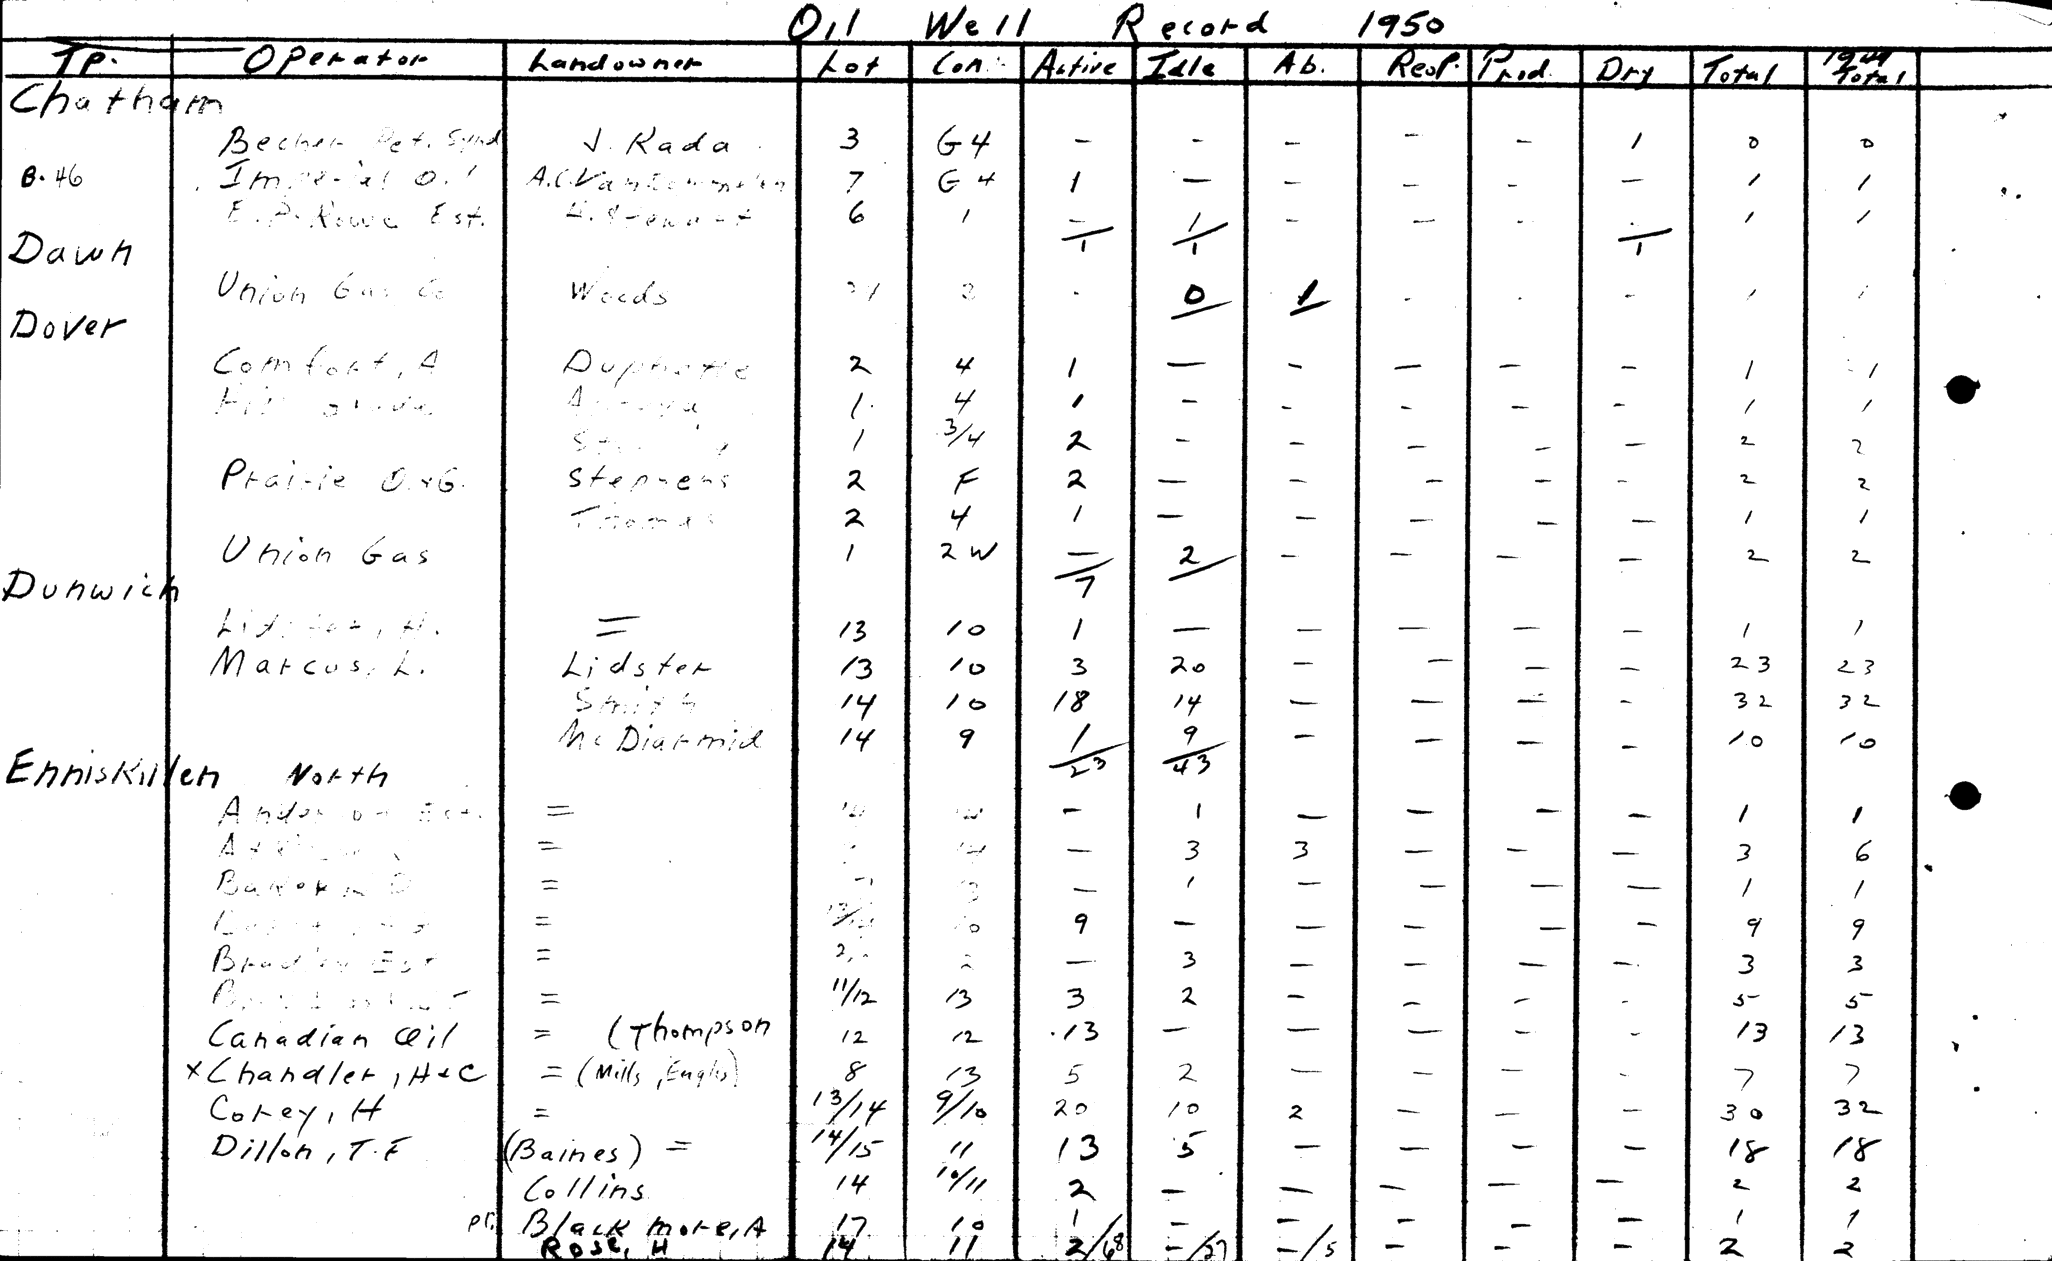 Oil Well Record 1950
Tp. Operator Landowner Lot Con. Active Idle Ab. Reop. Prod. Dry Total 1949 Total
Chatham
Becher Pet. Synd J. Rada 3 G4 - - - - - 1 0 0
B.46 Imperial Oil A.C. 7 G4 1 - - - - - 1 1
E.P. Rowe Est. H. Stewart 6 1 - 1 - - - . 1 1
1 1 1
Dawn
Union Gas Co Woods 2 - 0 1 - - - 1 1
Dover
Comfort, A 2 4 1 - - - - - 1 1
1 4 1 - - - - - 1 1
1 3/4 2 - - - - - 2 2
Prairie O.&G. Stephens 2 F 2 - - - - - 2 2
Thomas 2 4 1 - - - - - 1 1
Union Gas 1 2W - 2 - - - - 2 2
7
Dunwich
Lidster, H. = 13 10 1 - - - - - 1 1
Marcus, L. Lidster 13 10 3 20 - - - - 23 23
Smith 14 10 18 14 - - - - 32 32
McDiarmid 14 9 1 9 - - - - 10 10
23 43
Enniskillen North
Anderson Est. = - 1 - - - - 1 1
= - 3 3 - - - 3 6
= 13 - 1 - - - - 1 1
= 10 9 - - - - - 9 9
Bradley Est = 2 - 3 - - - - 3 3
= 11/12 13 3 2 - - - - 5 5
Canadian Oil = (Thompson 12 12 13 - - - - - 13 13
x Chandler, H&C = (Mills, ) 8 13 5 2 - - - - 7 7
Corey, H = 13/14 9/10 20 10 2 - - - 30 32
Dillon, T.F (Baines) = 14/15 11 13 5 - - - - 18 18
Collins 14 10/11 2 - - - - - 2 2
pt. Blackmore, A 17 10 1 - - - - - 1 1
Rose, H 14 11 2/68 -/27 -/5 - - - 2 2